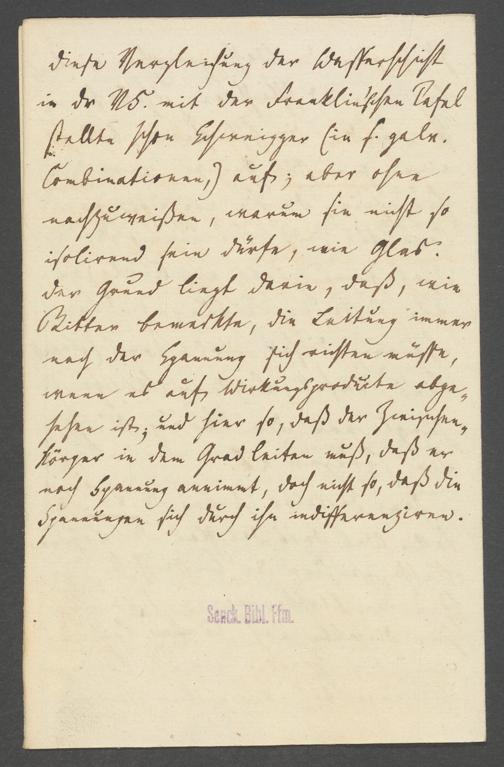 diese Vergleichung der Wasserschicht
in der VS. mit der Franklinschen Tafel
stellte schon Schweigger (in s. galv.
Combinationen,) auf; aber ohne
nachzuweißen, warum sie nicht so
isolirend sein dürfe, wie Glas.
der Grund liegt darin, daß, wie
Ritter bemerkte, die Leitung immer
nach der Spannung sich richten müsse,
wenn es auf Wirkungsproducte abge-
sehen ist; und hier so, daß der Zwischen-
körper in dem Grad leiten muß, daß er
noch Spannung annimmt, doch nicht so, daß die
Spannungen sich durch ihn indifferenziren.
Senck. Bibl. Ffm.